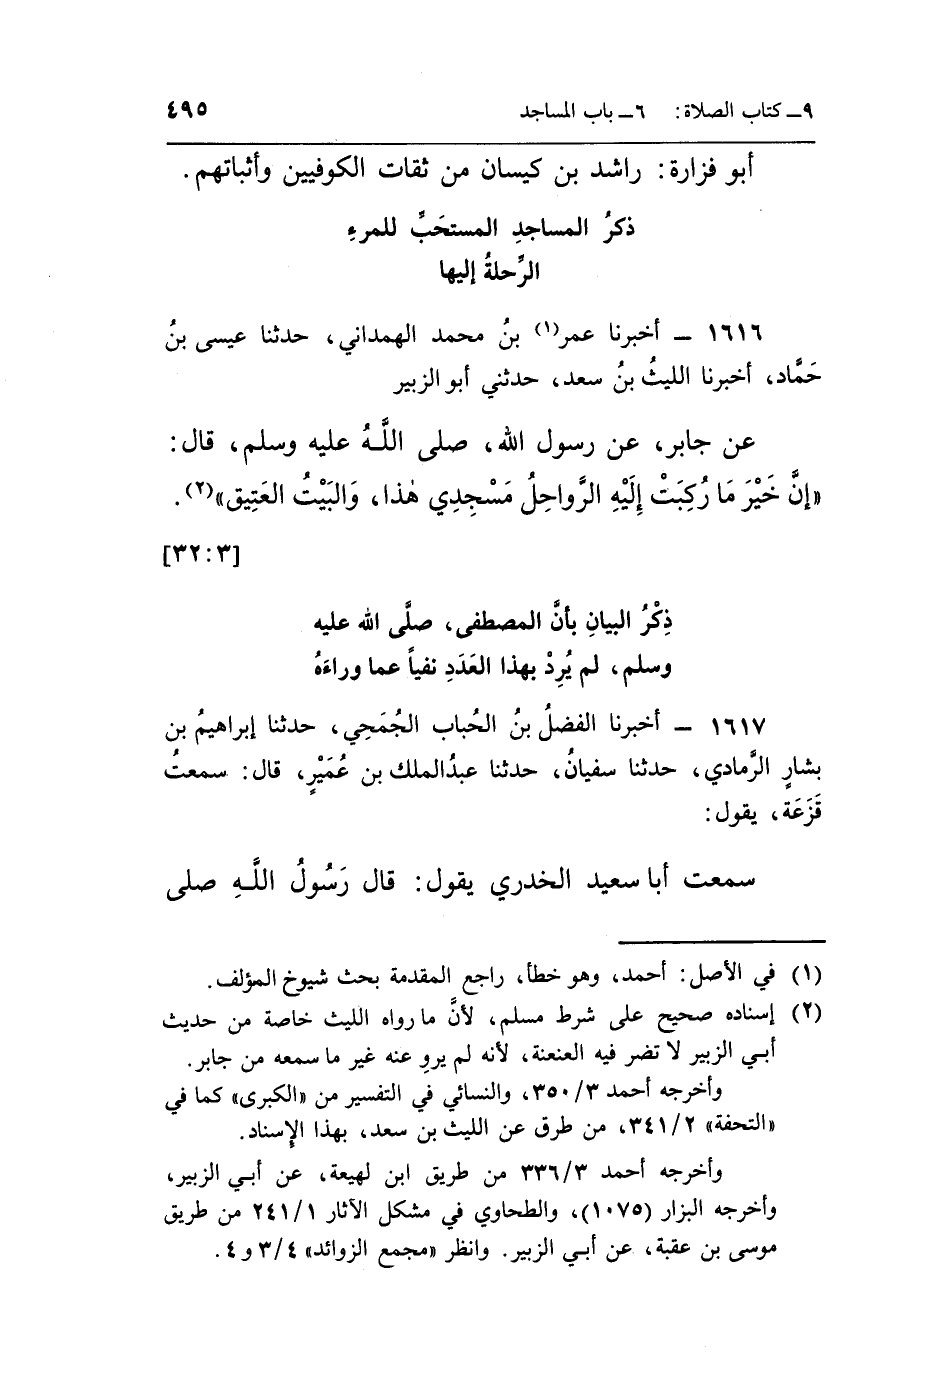 ٩ــ كتاب الصلاة: ٦ــ باب المساجد ٤٩٥
أبو فزارة: راشد بن كيسان من ثقات الكوفيين وأثباتهم.
ذكرُ المساجدِ المستحَبِّ للمرءِ
الرِّحلةُ إليها
١٦١٦ ــ أخبرنا عمر(١) بنُ محمد الهمداني، حدثنا عيسى بنُ
حَمَّاد، أخبرنا الليثُ بنُ سعد، حدثني أبو الزبير
عن جابر، عن رسول الله، صلى اللَّهُ عليه وسلم، قال:
«إنَّ خَيْرَ مَا رُكِبَتْ إِلَيْهِ الرَّواحِلُ مَسْجِدِي هٰذا، وَالبَيْتُ العَتِيق»(٢).
[٣٢:٣]
ذِكْرُ البيانِ بأنَّ المصطفى، صلَّى الله عليه
وسلم، لم يُرِدْ بهذا العَدَدِ نفياً عما وراءَهُ
١٦١٧ ــ أخبرنا الفضلُ بنُ الحُباب الجُمَحِي، حدثنا إبراهيمُ بن
بشارٍ الرَّمادي، حدثنا سفيانُ، حدثنا عبدُالملك بن عُمَيْرٍ، قال: سمعتُ
قَزَعَة، يقول:
سمعت أبا سعيد الخدري يقول: قال رَسُولُ اللَّهِ صلى
(١) في الأصل: أحمد، وهو خطأ، راجع المقدمة بحث شيوخ المؤلف.
(٢) إسناده صحيح على شرط مسلم، لأنَّ ما رواه الليث خاصة من حديث
أبي الزبير لا تضر فيه العنعنة، لأنه لم يروِ عنه غير ما سمعه من جابر.
وأخرجه أحمد ٣٥٠/٣، والنسائي في التفسير من «الكبرى» كما في
«التحفة» ٣٤١/٢، من طرق عن الليث بن سعد، بهذا الإسناد.
وأخرجه أحمد ٣٣٦/٣ من طريق ابن لهيعة، عن أبي الزبير،
وأخرجه البزار (١٠٧٥)، والطحاوي في مشكل الآثار ٢٤١/١ من طريق
موسى بن عقبة، عن أبي الزبير. وانظر «مجمع الزوائد» ٣/٤ و٤.